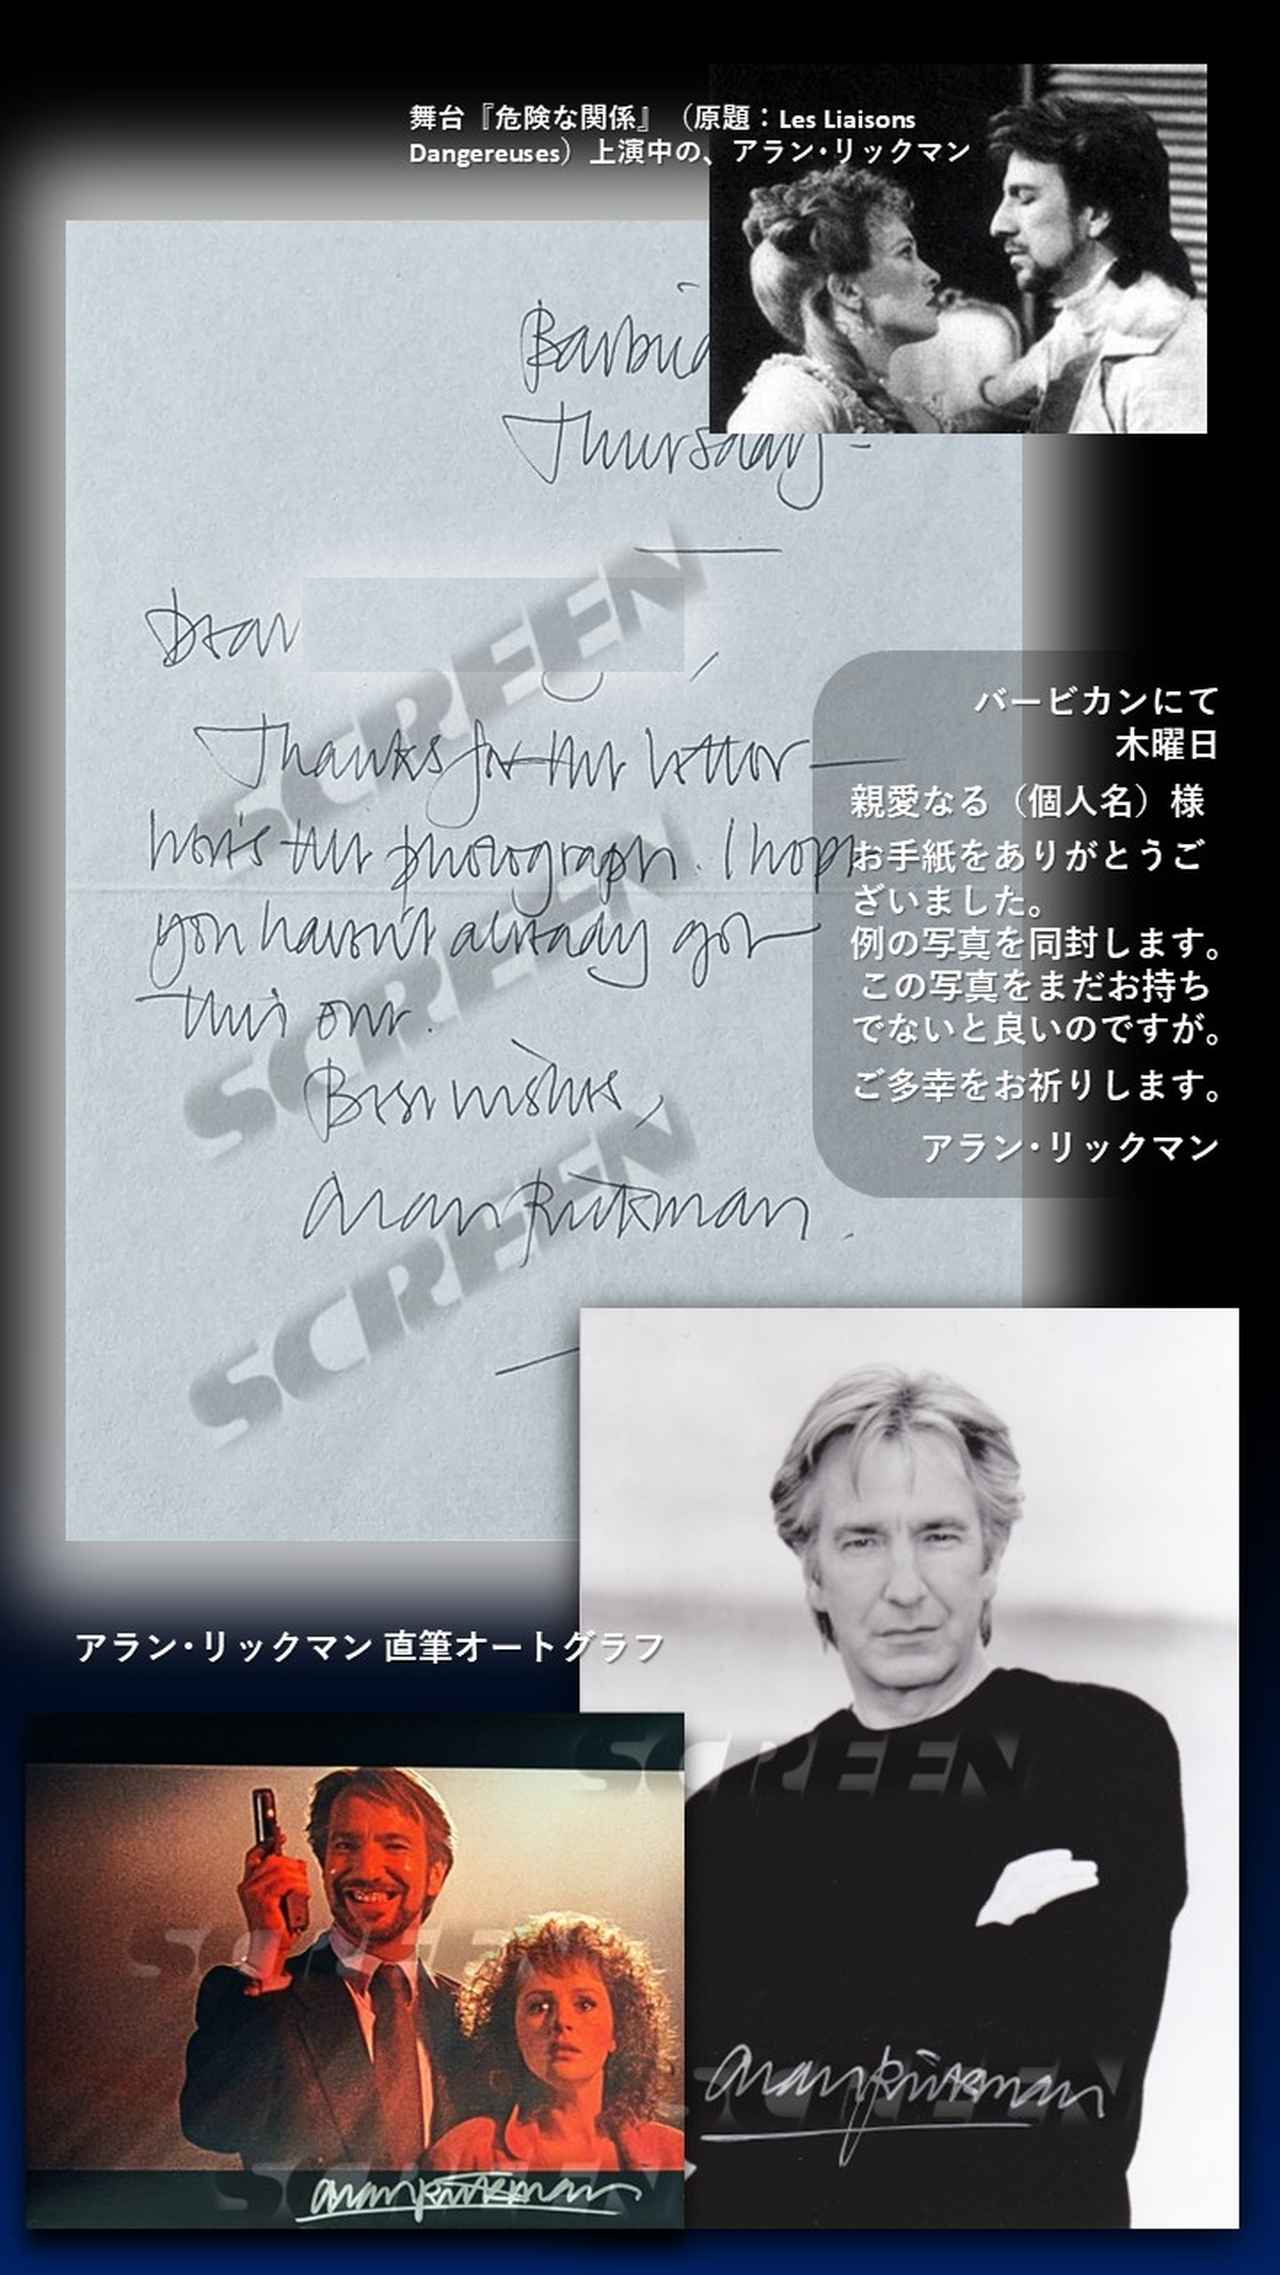 舞台『危険な関係』（原題：Les Liaisons
Dangereuses）上演中の、アラン・リックマン
Thursday –
Dear
,
Thanks for the letter —
here's the photograph. I hope
you haven't already got
this one.
Best wishes,
Alan Rickman.
SCREEN
SCREEN
SCREEN
バービカンにて
木曜日
親愛なる（個人名）様
お手紙をありがとうご
ざいました。
例の写真を同封します。
この写真をまだお持ち
でないと良いのですが。
ご多幸をお祈りします。
アラン・リックマン
アラン・リックマン 直筆オートグラフ
SCREEN
SCREEN
Alan Rickman
SCREEN
Alan Rickman
SCREEN